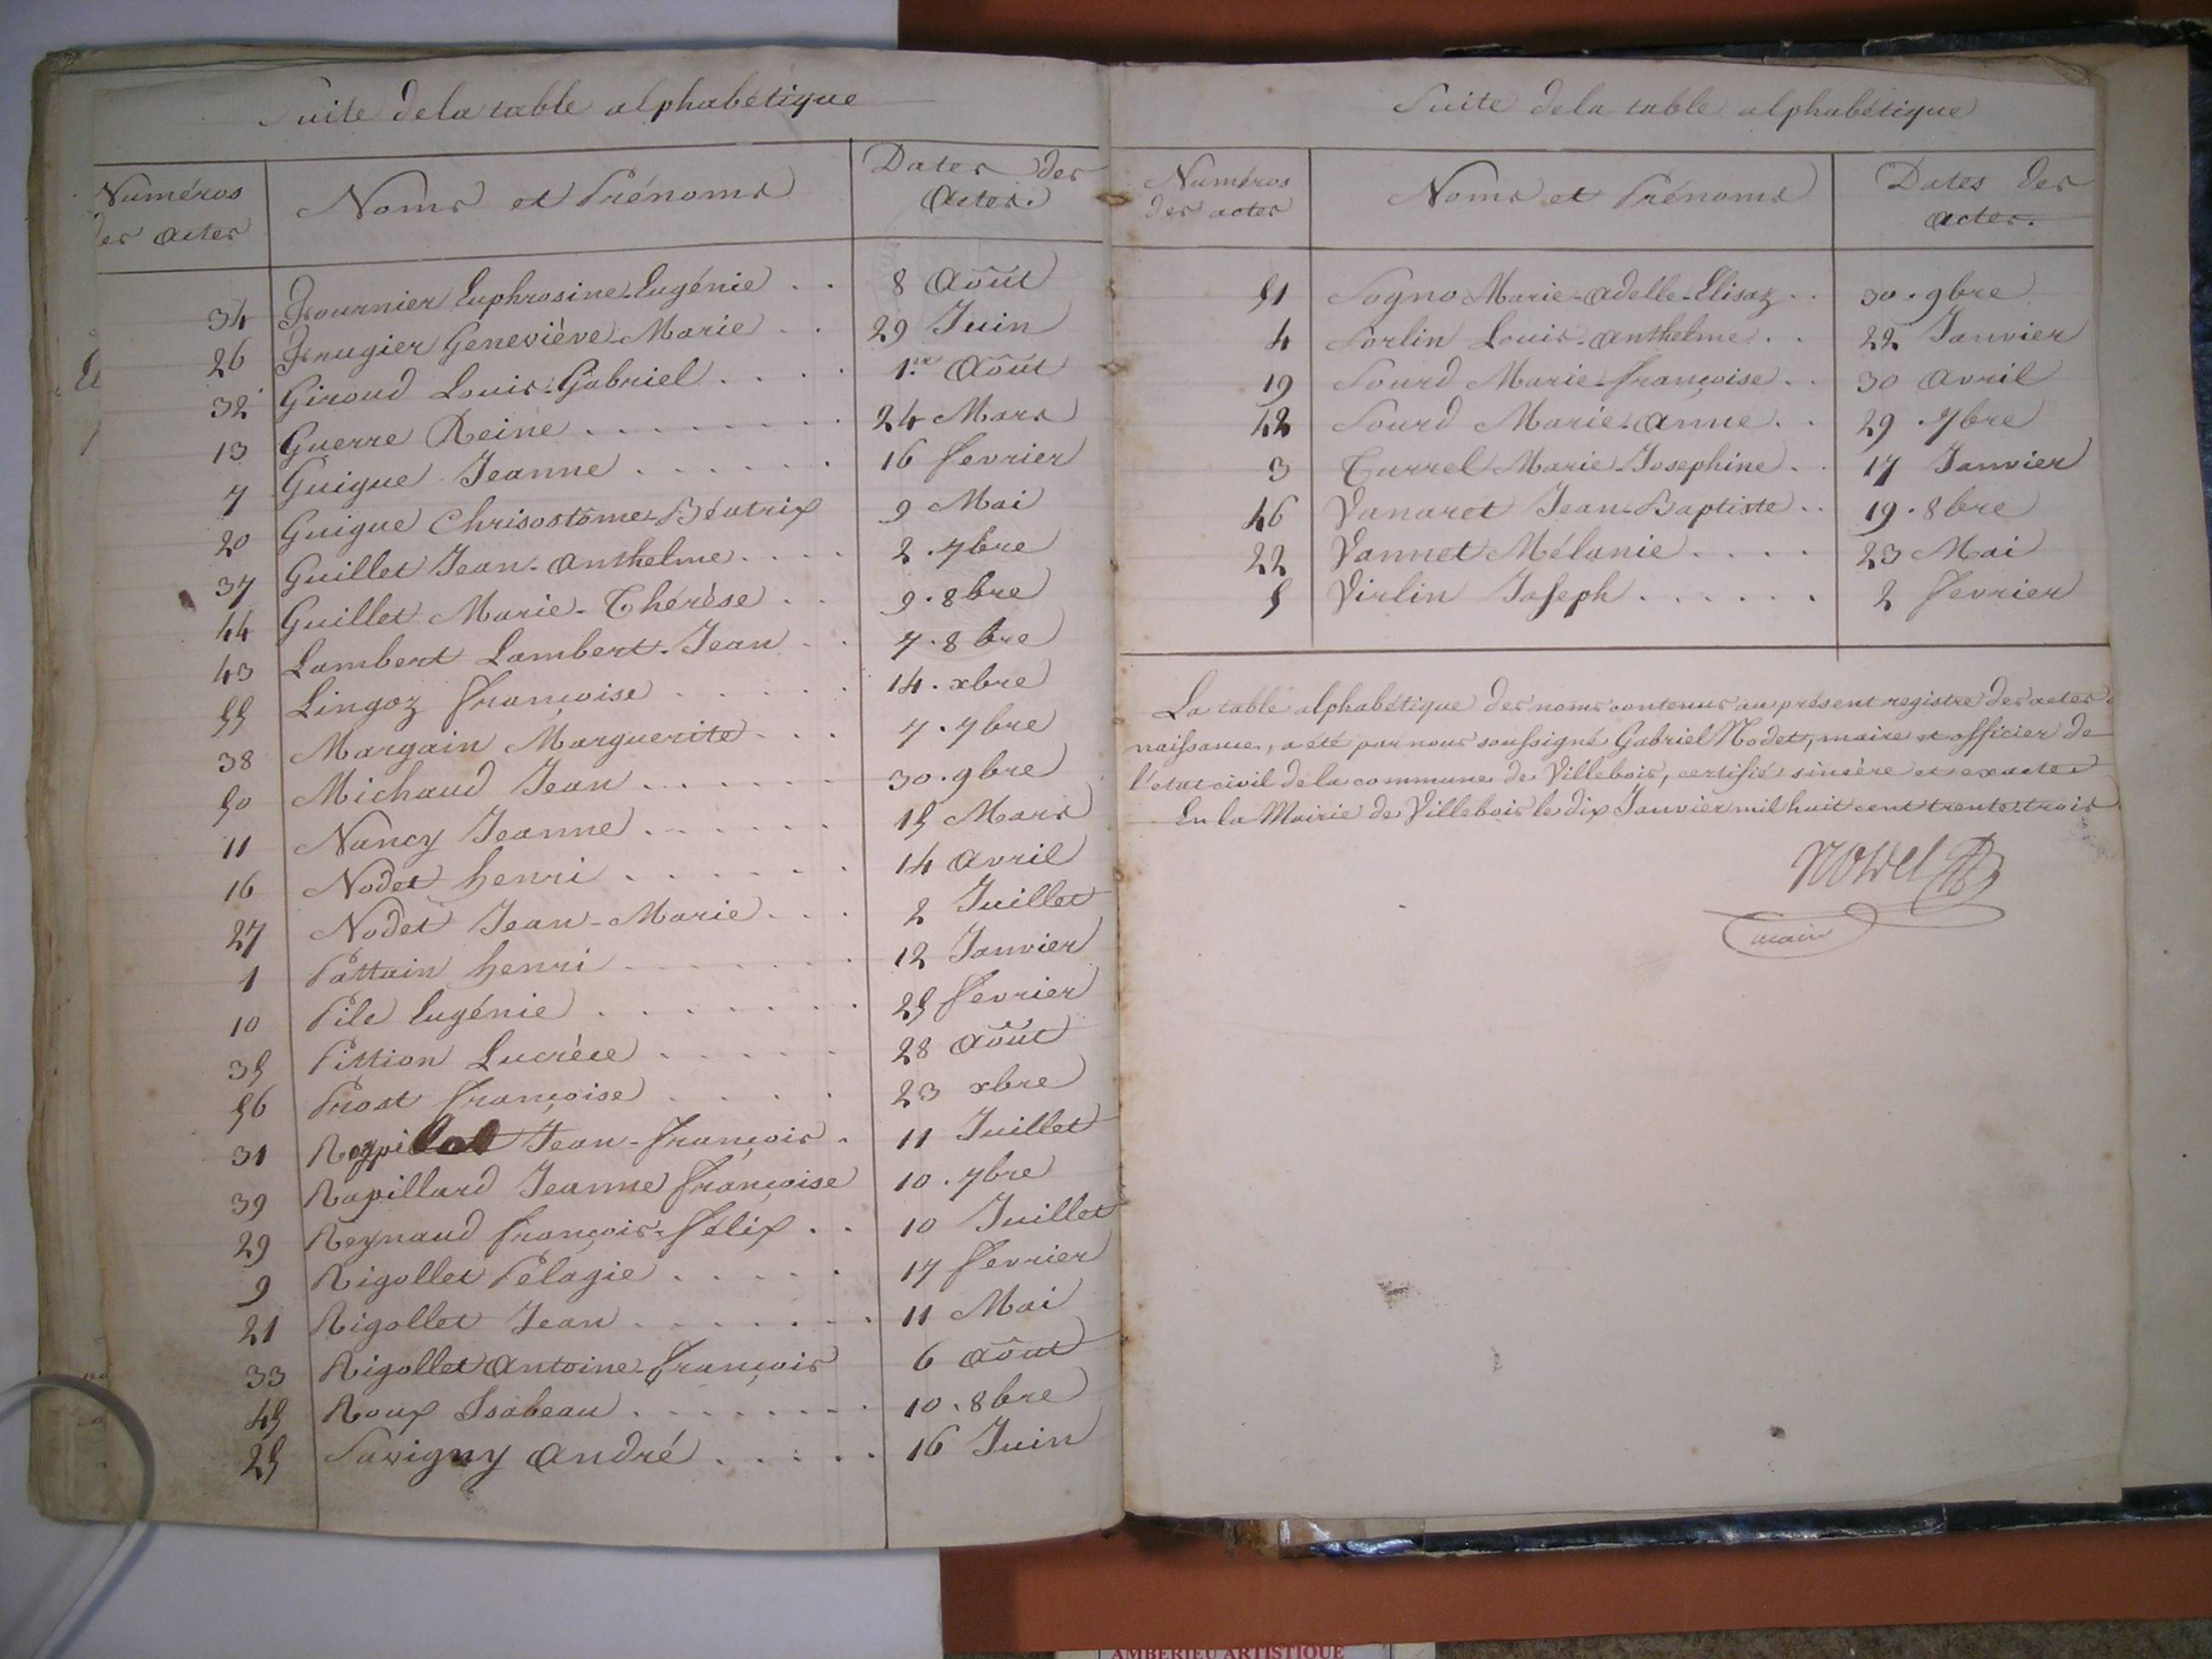 Suite de la table alphabétique
Numéros des actes Noms et Prénoms Dates des Actes.
34 Fournier Euphrosine-Eugénie . . 8 Août
26 Frugier Geneviève-Marie . . 29 Juin
32 Giroud Louis-Gabriel . . . . 1.er Août
13 Guerre Reine . . . . . . . 24 Mars
7 Guigue Jeanne . . . . . . 16 fevrier
20 Guigue Chrisostôme-Béatrix 9 Mai
37 Guillet Jean-Anthelme . . . . 2 . 7bre
44 Guillet Marie-Thérèse . . 9 . 8bre
43 Lambert Lambert-Jean . . 7 . 8bre
55 Lingoz françoise . . . . . 14 . xbre
38 Margain Marguerite . . . 7 . 7bre
50 Michaud Jean . . . . . 30 . 9bre
11 Nancy Jeanne . . . . . . 15 Mars
16 Nodet henri . . . . . . 14 Avril
27 Nodet Jean-Marie . . . 2 Juillet
1 Pattain henri . . . . . . 12 Janvier
10 Pile Eugénie . . . . . . . 25 fevrier
35 Pittion Lucrèce . . . . . 28 Août
56 Prost françoise . . . . 23 xbre
31 Jean-françois . 11 Juillet
39 Rapillard Jeanne françoise 10 . 7bre
29 Reynaud françois-félix . . 10 Juillet
9 Rigollet Pélagie . . . . . 17 fevrier
21 Rigollet Jean . . . . . . . 11 Mai
33 Rigollet Antoine-françois 6 Août
45 Roux Isabeau . . . . . . . 10 . 8bre
25 Savigny André . . . . . 16 Juin
Suite de la table alphabétique
Numéros des actes Noms et Prénoms Dates des actes.
51 Sogno Marie-Adelle-Elisaz . . 30 . 9bre
4 Sorlin Louis-Anthelme . . 22 Janvier
19 Sourd Marie-françoise . . 30 Avril
42 Sourd Marie-Anne . . 29 . 7bre
3 Turrel Marie-Josephine . . 17 Janvier
46 Vanaret Jean-Baptiste . . 19 . 8bre
22 Vannet Mélanie . . . . 23 Mai
5 Virlin Joseph . . . . . . 2 fevrier
La table alphabétique des noms contenus au présent registre des actes
naissance, a été par nous soussigné Gabriel Nodet, maire et officier de
l'état civil de la commune de Villebois, certifié sincère et exacte.
En la Mairie de Villebois le dix Janvier mil huit cent trente-trois
Nodet
maire
AMBERIEU ARTISTIQUE